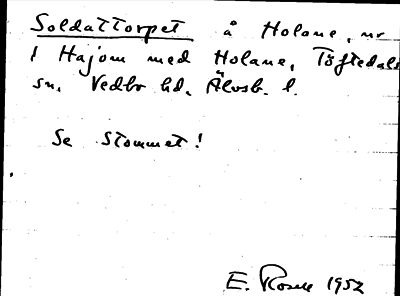 Soldattorpet å Holane, nr
1 Hajom med Holane, Töftedals
sn. Vedbo hd. Älvsb. l.
Se Stommet!
E. 1952